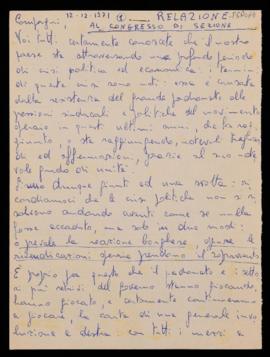 Compagni, 12-12-1971 (1) RELAZIONE
AL CONGRESSO DI SEZIONE
Voi tutti certamente conoscete che il nostro
paese sta attraversando un profondo periodo
di crisi politica ed economica: i termini
di questa crisi sono noti: essa è causata
dalla resistenza del grande padronato alle
pressioni sindacali e politiche del movimento
operaio in questi ultimi anni, che ha rag
giunto, e sta raggiungendo, notevoli
ed affermazioni, grazie al suo note
vole grado di unità.
Siamo dunque giunti ad una svolta: ri
cordiamoci che le crisi politiche non si ri
solvono andando avanti come se nulla
fosse accaduto, ma solo in due modi:
o prevale la reazione borghese, oppure le
rivendicazioni operaie prendono il sopravvento.
È proprio per questo che il padronato e i setto
ri più retrivi del governo stanno giocando,
hanno giocato, e certamente continueranno
a giocare, la carta di una generale invo
luzione a destra con tutti i mezzi a